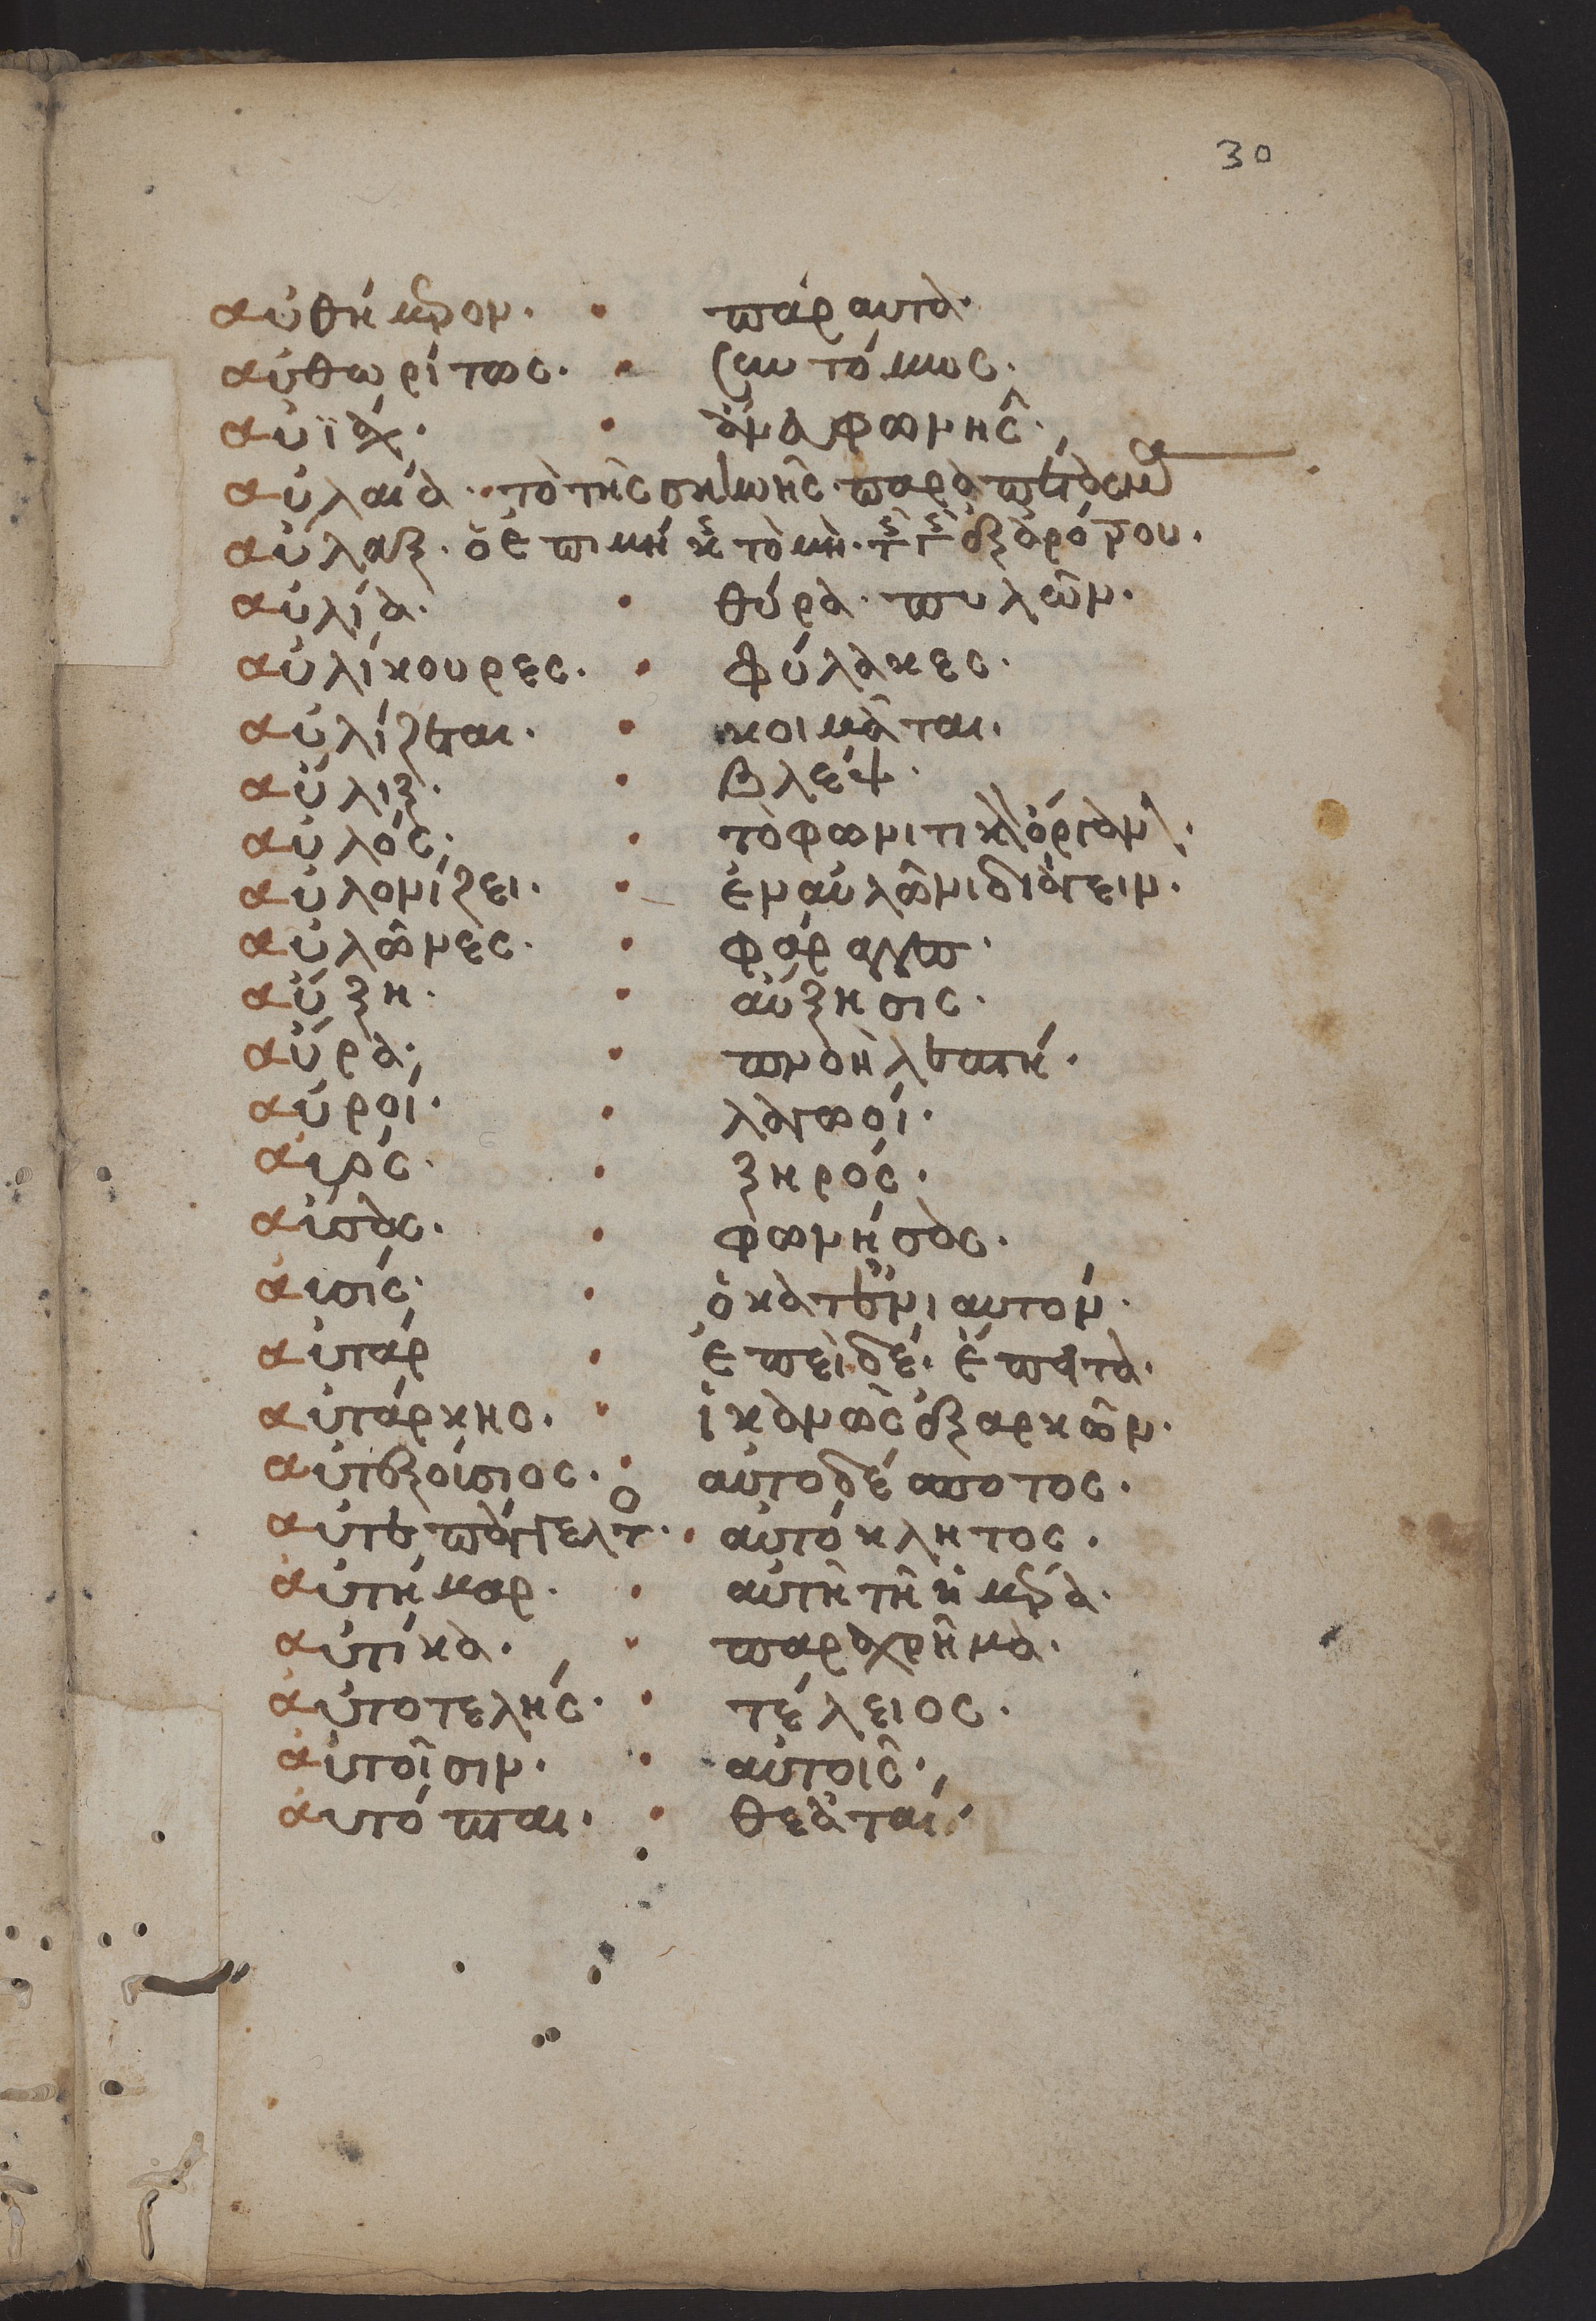 30
αὐθήμερον. παραυτά.
αὐθωρίτως. συντόμως.
αὐΐαχ. ἄνα φωνῆς.
αὐλαία. τὸ τῆς σκηνῆς παραπέτασμα
αὐλαξ. ὁ ἐπιμήκ τομὴ. τ γ ἐξ ἀρότρου.
αὐλία. θύρα. πυλῶν.
αὐλίκουρες. φύλακες.
αὐλίζεται. κοιμᾶται.
αὔλιξ. φλέψ.
αὐλός. τὸ φωνιτικὸν ὄργανον.
αὐλονίζει. ἐν αὐλῶνι διάγειν.
αὐλῶνες. φάραγγες.
αὔξη. αὔξησις.
αὔρα. πνοὴ λεπτή.
αὐροί. λαγωοί.
αυρός. ξηρός.
αὔσας. φωνήσας.
αυσίς. ὁ κατ ἐνιαυτόν.
αὐτὰρ ἐπειδέ. ἔπειτα.
αὐτάρκης. ἱκανῶς ἐξαρκῶν.
αὐτεξούσιος. αὐτοδέσποτος.
αὐτεπάγγελτο. αὐτόκλητος.
αὐτῆμαρ. αὐτῇ τῇ ἡμέρα.
αὐτίκα. παραχρῆμα.
αὐτοτελής. τέλειος.
αὐτοῖσιν. αὐτοῖς.
αυτόπται. θεαταί.